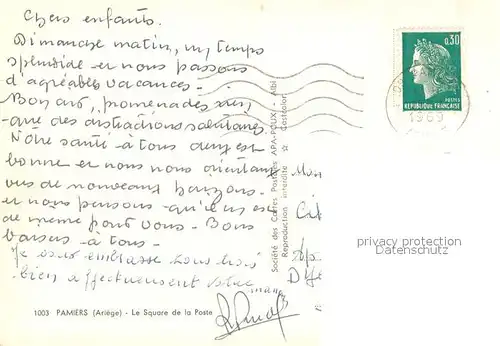 Chers enfants.
Dimanche matin, un temps
splendide et nous passons
d'agréables vacances -
Bon air, promenades
- que des distractions salutaires
Notre santé - à tous deux est
bonne et nous nous
vers de nouveaux horizons -
et nous pensons - qu'il en est
de même pour vous - Bons
baisers - à tous -
Je vous embrasse tous trois
bien affectueusement votre
maman
1003 PAMIERS (Ariège) - Le Square de la Poste
Société des Cartes Postales APA-POUX - Albi
Reproduction interdite ☆ Castelcolor
0,30
POSTES
REPUBLIQUE FRANÇAISE
1969
privacy protection
Datenschutz